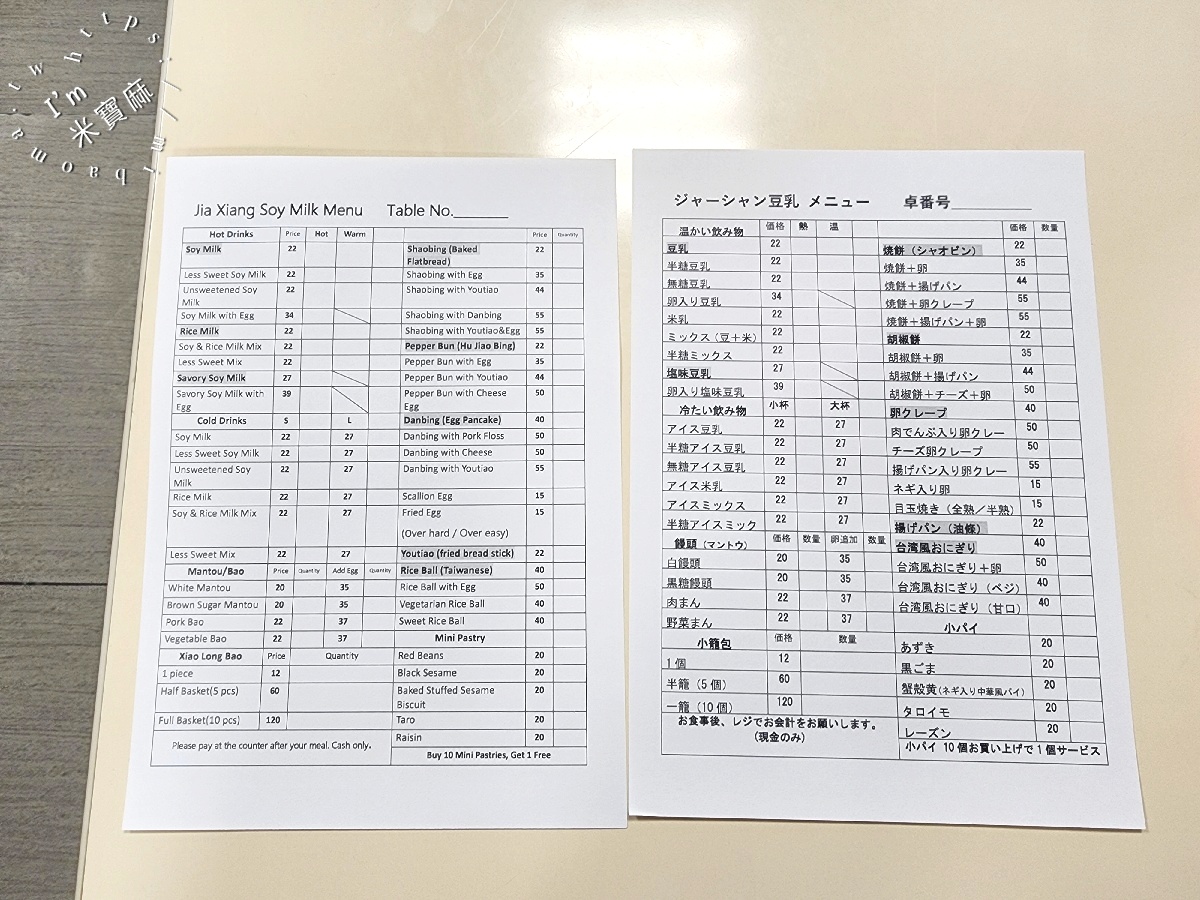 https://
I'm
米寶麻
mibaoma.tw
Jia Xiang Soy Milk Menu Table No.______
Hot Drinks Price Hot Warm Price Quantity
Soy Milk 22 Shaobing (Baked Flatbread) 22
Less Sweet Soy Milk 22 Shaobing with Egg 35
Unsweetened Soy Milk 22 Shaobing with Youtiao 44
Soy Milk with Egg 34 Shaobing with Danbing 55
Rice Milk 22 Shaobing with Youtiao&Egg 55
Soy & Rice Milk Mix 22 Pepper Bun (Hu Jiao Bing) 22
Less Sweet Mix 22 Pepper Bun with Egg 35
Savory Soy Milk 27 Pepper Bun with Youtiao 44
Savory Soy Milk with Egg 39 Pepper Bun with Cheese Egg 50
Cold Drinks S L Danbing (Egg Pancake) 40
Soy Milk 22 27 Danbing with Pork Floss 50
Less Sweet Soy Milk 22 27 Danbing with Cheese 50
Unsweetened Soy Milk 22 27 Danbing with Youtiao 55
Rice Milk 22 27 Scallion Egg 15
Soy & Rice Milk Mix 22 27 Fried Egg 15
(Over hard / Over easy)
Less Sweet Mix 22 27 Youtiao (fried bread stick) 22
Mantou/Bao Price Quantity Add Egg Quantity Rice Ball (Taiwanese) 40
White Mantou 20 35 Rice Ball with Egg 50
Brown Sugar Mantou 20 35 Vegetarian Rice Ball 40
Pork Bao 22 37 Sweet Rice Ball 40
Vegetable Bao 22 37 Mini Pastry
Xiao Long Bao Price Quantity Red Beans 20
1 piece 12 Black Sesame 20
Half Basket(5 pcs) 60 Baked Stuffed Sesame Biscuit 20
Full Basket(10 pcs) 120 Taro 20
Raisin 20
Please pay at the counter after your meal. Cash only.
Buy 10 Mini Pastries, Get 1 Free
ジャーシャン豆乳 メニュー 卓番号__________
温かい飲み物 価格 熱 温 価格 数量
豆乳 22 焼餅（シャオピン） 22
半糖豆乳 22 焼餅＋卵 35
無糖豆乳 22 焼餅＋揚げパン 44
卵入り豆乳 34 焼餅＋卵クレープ 55
米乳 22 焼餅＋揚げパン＋卵 55
ミックス（豆＋米） 22 胡椒餅 22
半糖ミックス 22 胡椒餅＋卵 35
塩味豆乳 27 胡椒餅＋揚げパン 44
卵入り塩味豆乳 39 胡椒餅＋チーズ＋卵 50
冷たい飲み物 小杯 大杯 卵クレープ 40
アイス豆乳 22 27 肉でんぶ入り卵クレー 50
半糖アイス豆乳 22 27 チーズ卵クレープ 50
無糖アイス豆乳 22 27 揚げパン入り卵クレー 55
アイス米乳 22 27 ネギ入り卵 15
アイスミックス 22 27 目玉焼き（全熟／半熟） 15
半糖アイスミック 22 27 揚げパン（油條） 22
饅頭（マントウ） 価格 数量 卵追加 数量 台湾風おにぎり 40
白饅頭 20 35 台湾風おにぎり＋卵 50
黒糖饅頭 20 35 台湾風おにぎり（ベジ） 40
肉まん 22 37 台湾風おにぎり（甘口） 40
野菜まん 22 37 小パイ
小籠包 価格 数量 あずき 20
1個 12 黒ごま 20
半籠（5個） 60 蟹殻黄（ネギ入り中華風パイ） 20
一籠（10個） 120 タロイモ 20
レーズン 20
お食事後、レジでお会計をお願いします。
（現金のみ）
小パイ 10個お買い上げで1個サービス